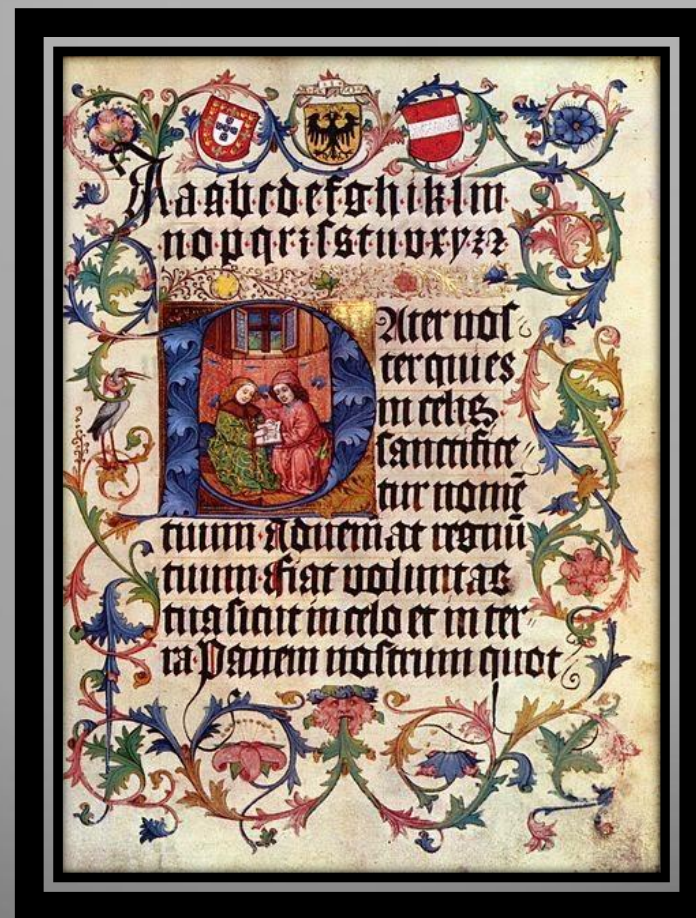 A a a b c d e f g h i k l m
n o p q r ꝛ ſ s t u v x y z
PAter noſ
ter qui es
in celis
ſanctifice
tur nomē
tuum Adueniat regnū
tuum Fiat voluntas
tua ſicut in celo et in ter
ra Panem noſtrum quot